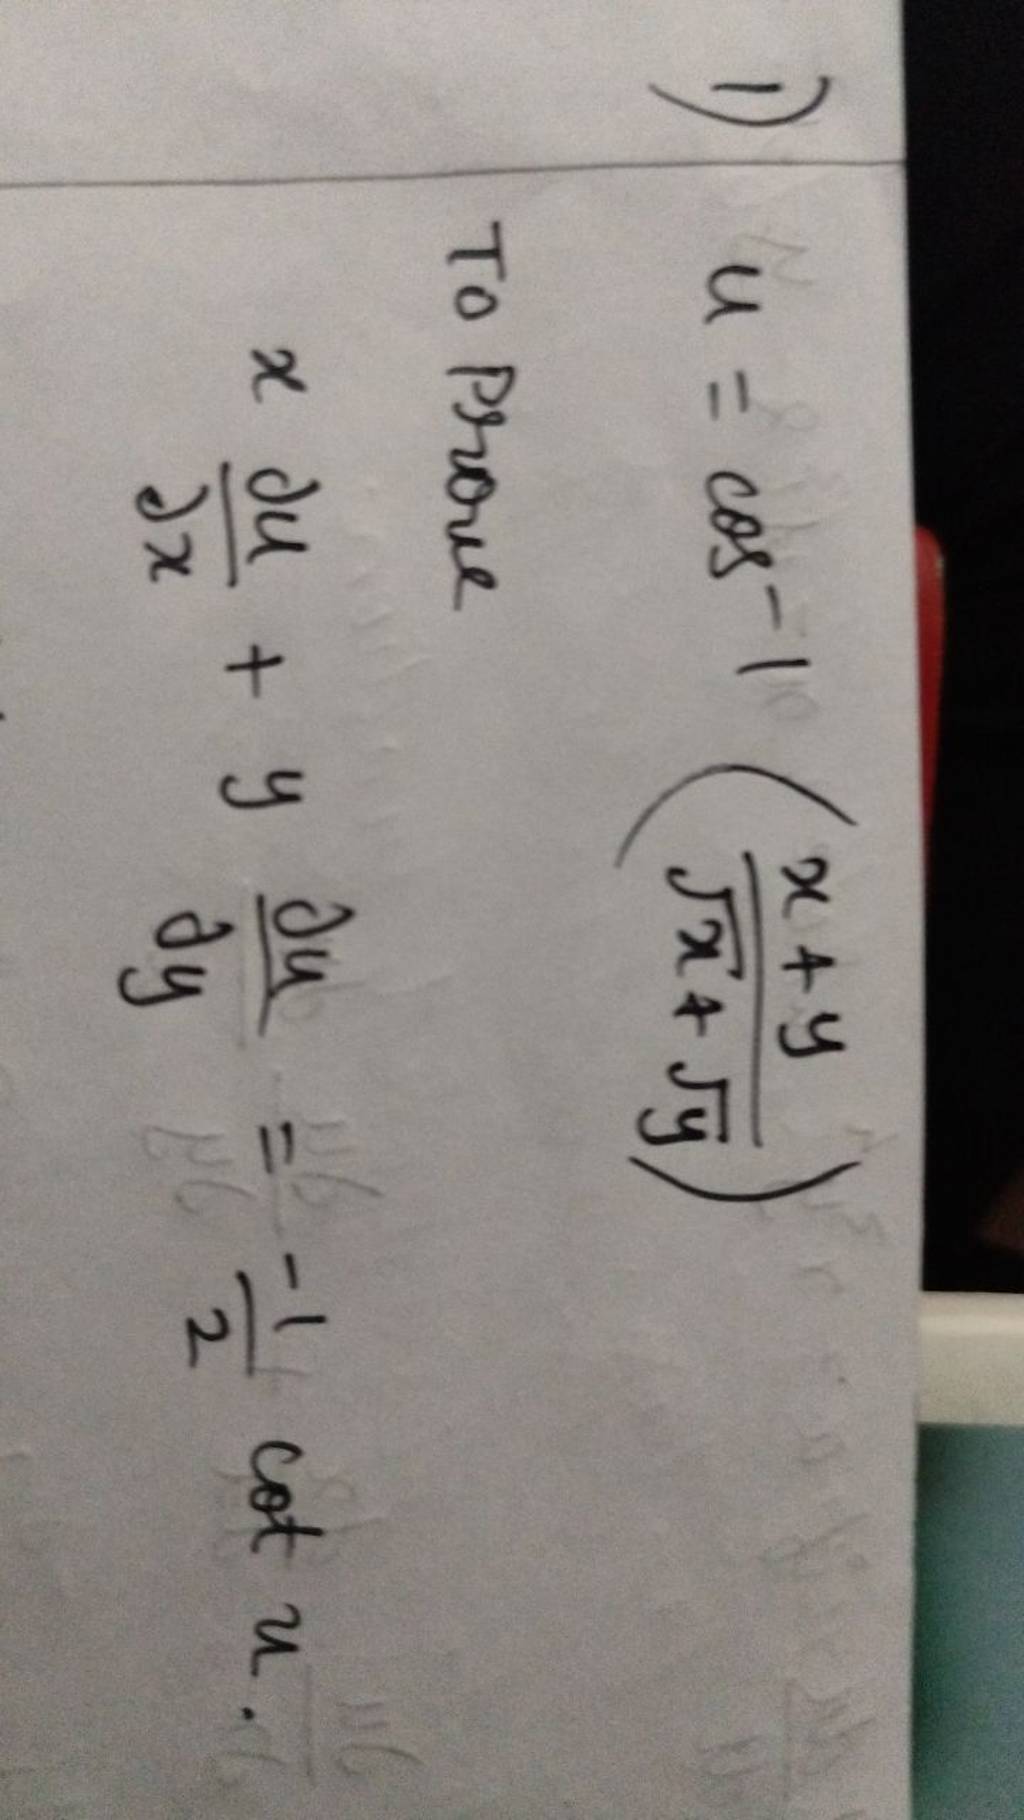 1) u = cos⁻¹ ( (x + y) / (√x + √y) )
To Prove
x ∂u/∂x + y ∂u/∂y = -1/2 cot u.